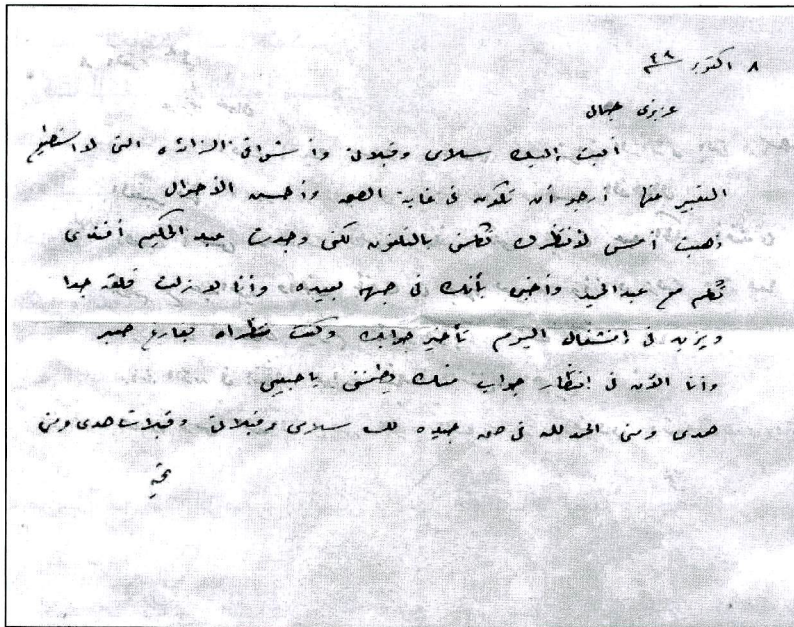 ٨ أكتوبر ٤٨
عزيزى جمال
أبعث إليك سلامى وقبلاتى وأشواقى الزائده التى لا استطيع
التعبير عنها أرجو أن تكون فى غاية الصحه وأحسن الأحوال
ذهبت أمس لأنتظرك تكلمنى بالتلفون لكنى وجدت عبد الحكيم أفندى
تكلم مع عبد الحميد وأخبره بأنك فى جبهه بعيده وأنا لا زلت قلقه جدا
ويزيد فى إنشغالى اليوم تأخير جوابك وكنت منتظراه بفارغ صبر
وأنا الآن فى إنتظار جواب منك يطمنى يا حبيبى
هدى ومنى الحمد لله فى صحه جيده لك سلامى وقبلاتى وقبلات هدى ومنى
تحيه